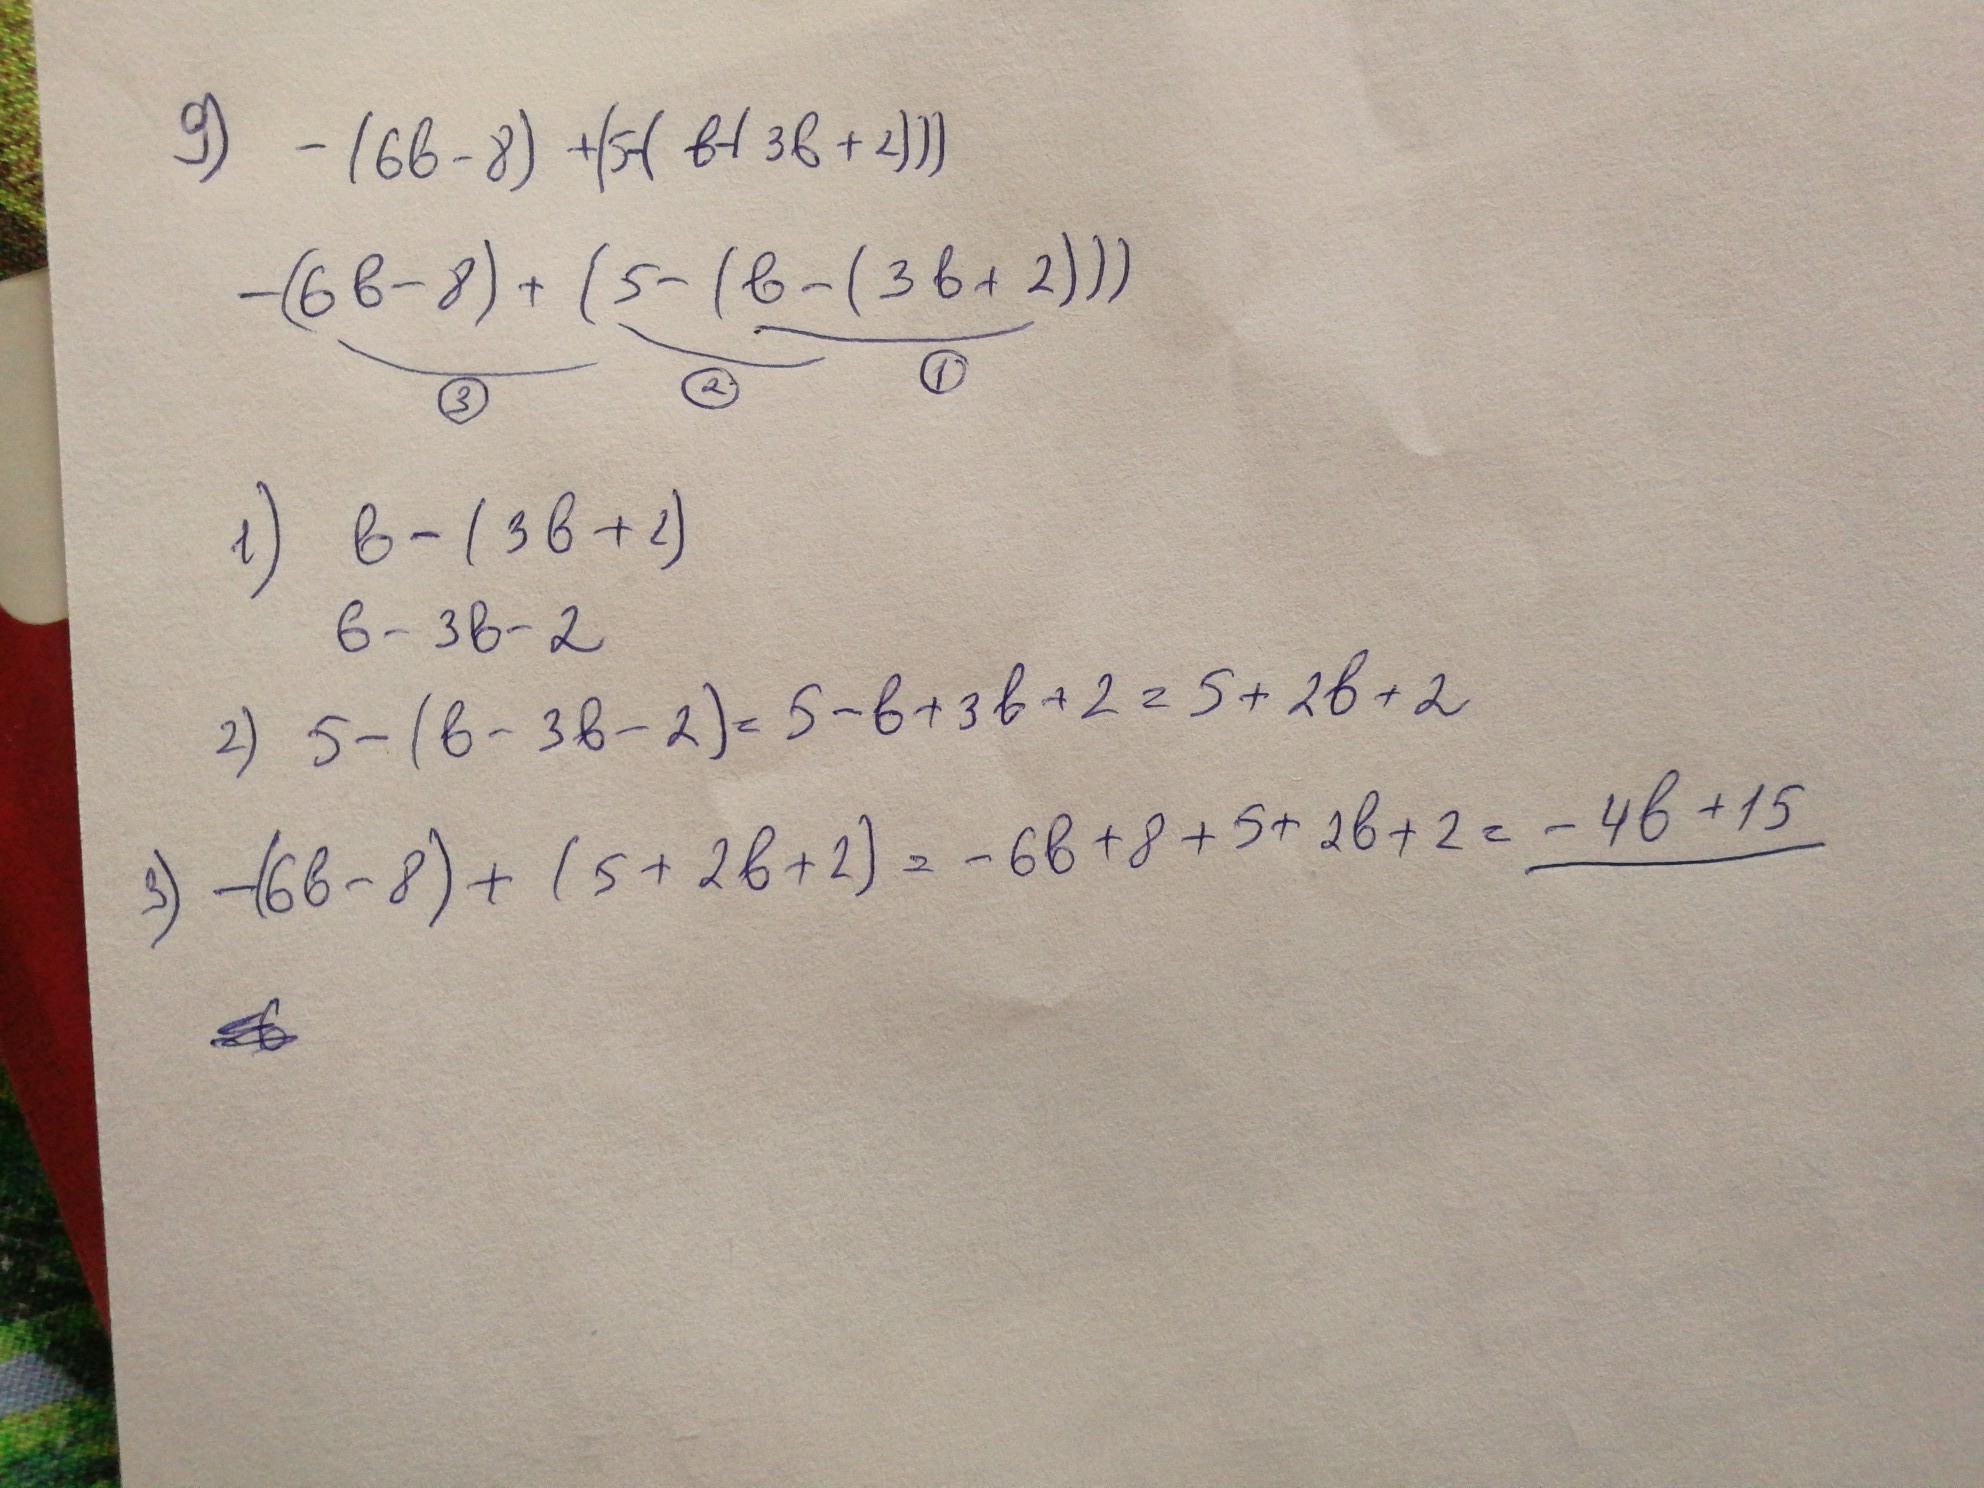 9) -(6b-8)+(5-(b-(3b+2)))
-(6b-8)+(5-(b-(3b+2)))
3 2 1
1) b-(3b+2)
b-3b-2
2) 5-(b-3b-2)=5-b+3b+2=5+2b+2
3) -(6b-8)+(5+2b+2)=-6b+8+5+2b+2=-4b+15